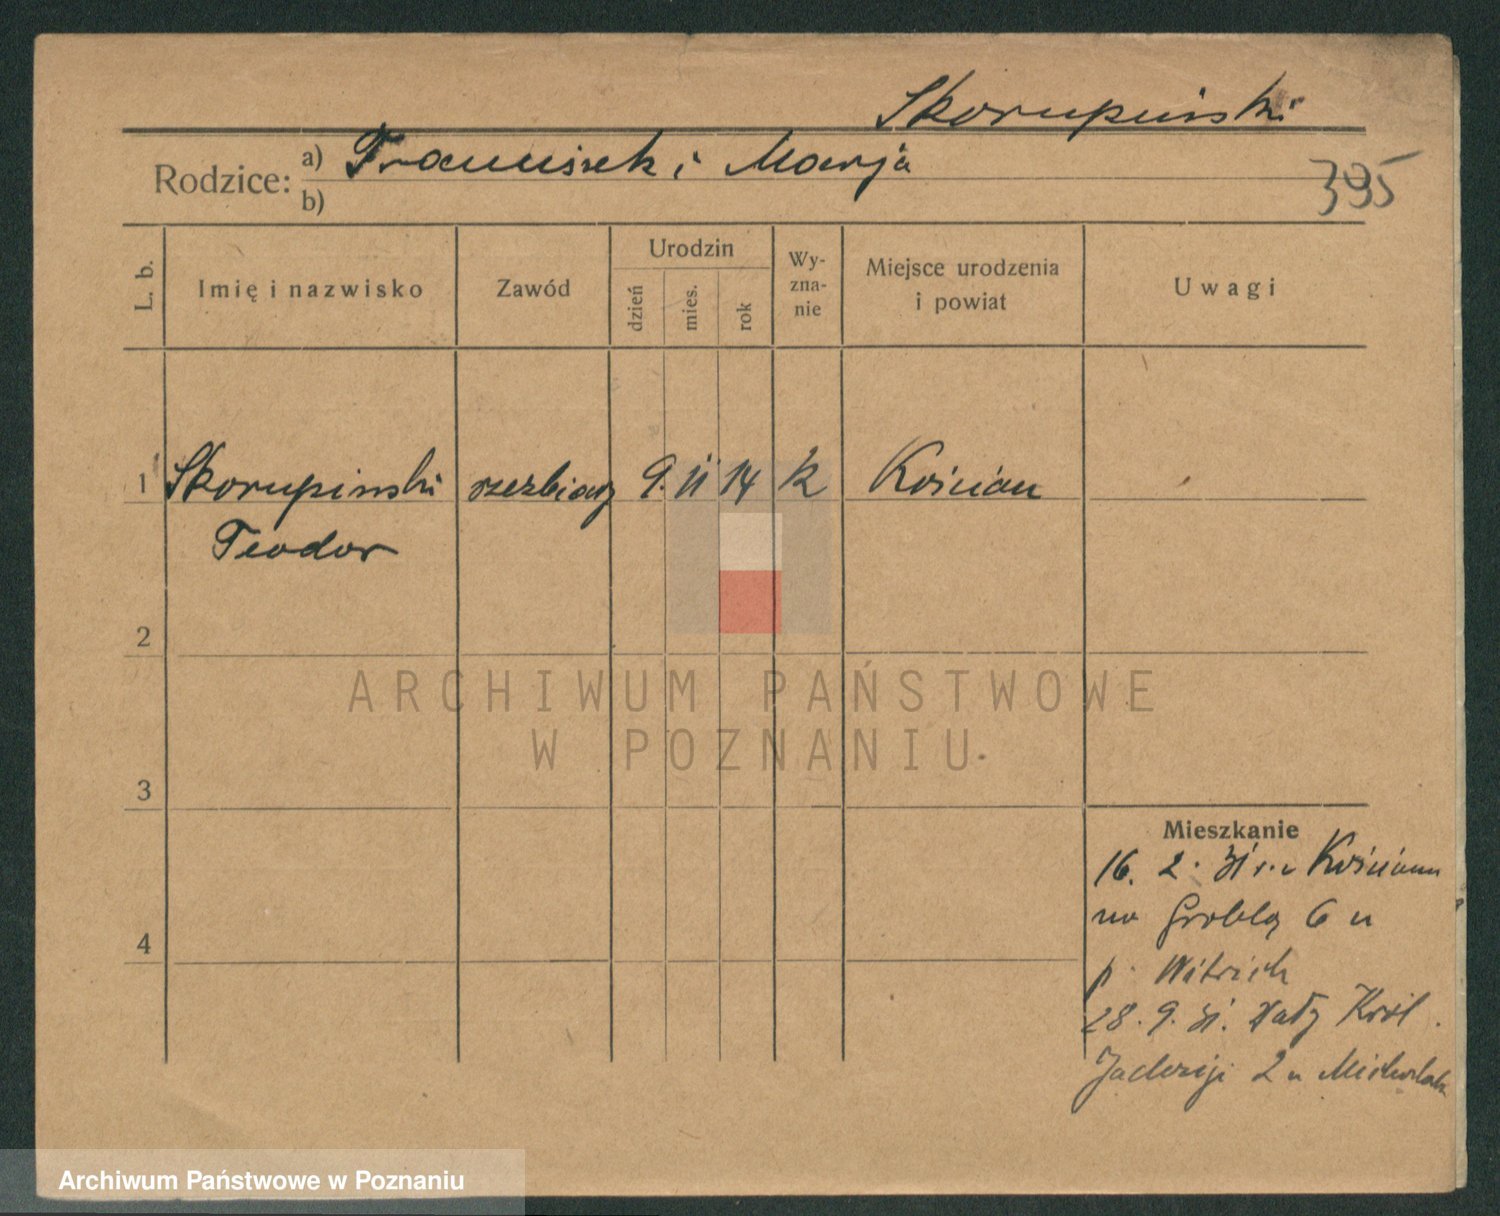 Skorupiński
Rodzice: a) Franciszek i Marja
b)
395
L. b.
Imię i nazwisko
Zawód
Urodzin
dzień
mies.
rok
Wy-
zna-
nie
Miejsce urodzenia
i powiat
Uwagi
1 Skorupiński rzeźbiarz 9. 11 14 k Kościan
Teodor
2
3
4
ARCHIWUM PAŃSTWOWE
W POZNANIU
Mieszkanie
16. 2. 31 Kościan
na Groblą 6 u
p. Witrich
28. 9. 31. Król.
Jadwigi 2 u
Archiwum Państwowe w Poznaniu